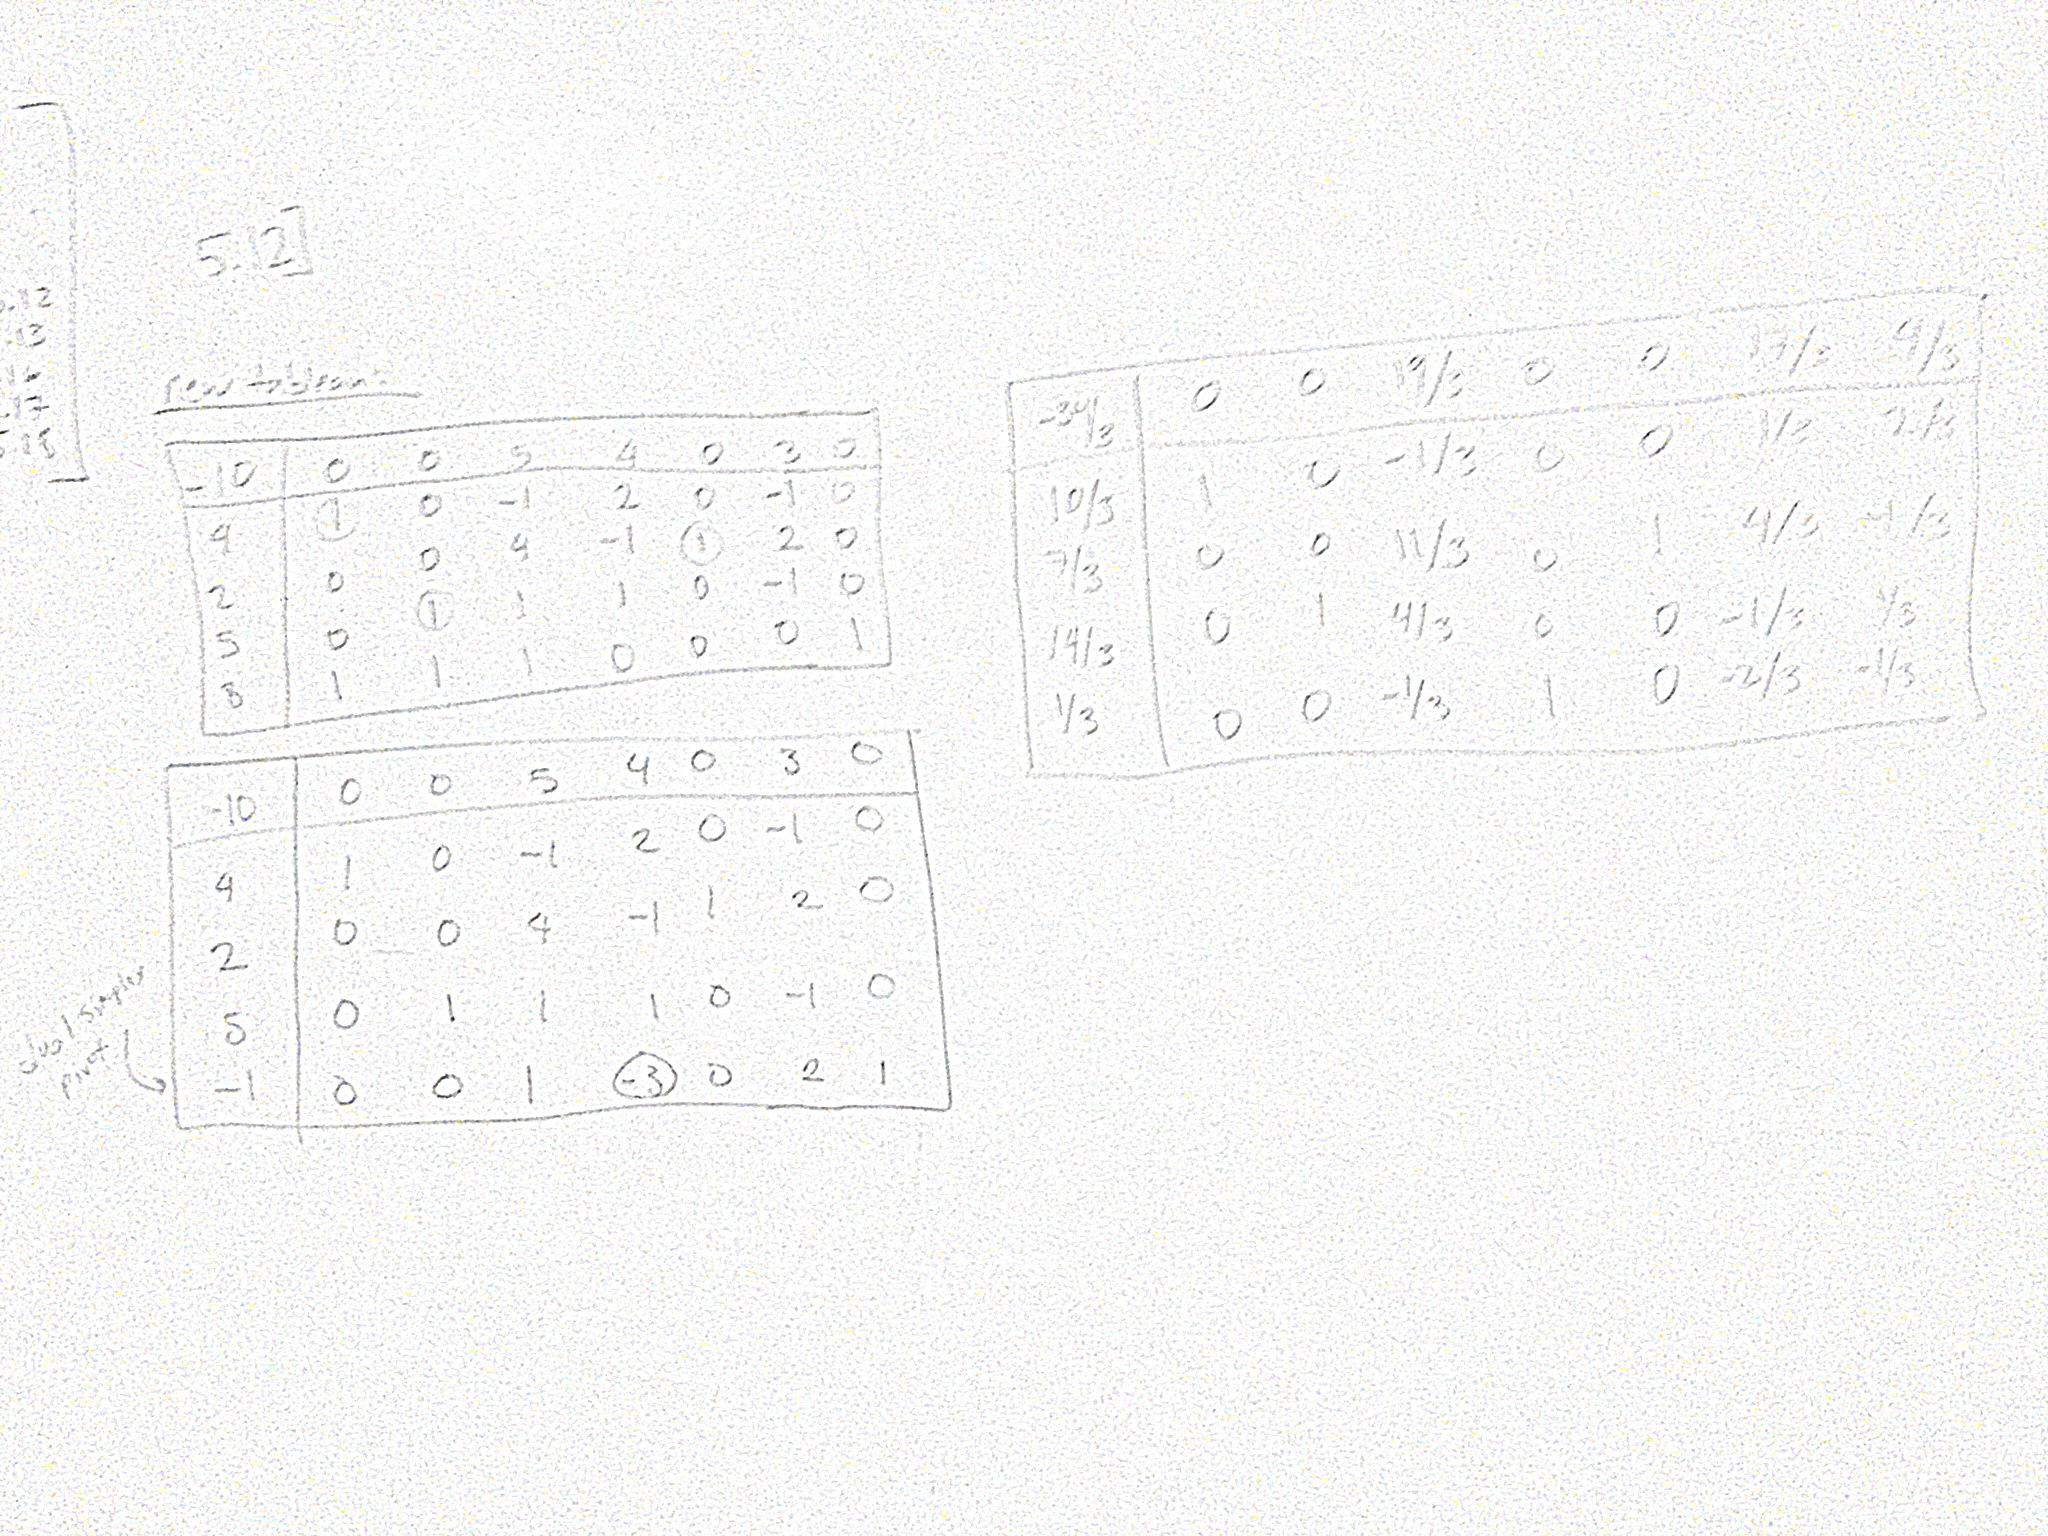 .12
.13
.17
5.[2]
new tableau:
-10 0 0 5 4 0 3 0
4 1 0 -1 2 0 -1 0
2 0 0 4 -1 1 2 0
5 0 1 1 1 0 -1 0
8 1 1 1 0 0 0 1
-10 0 0 5 4 0 3 0
4 1 0 -1 2 0 -1 0
2 0 0 4 -1 1 2 0
5 0 1 1 1 0 -1 0
-1 0 0 1 -3 0 2 1
dual simplex
pivot
-34/3 0 0 19/3 0 0 17/3 4/3
10/3 1 0 -1/3 0 0 1/3 2/3
7/3 0 0 11/3 0 1 4/3 -1/3
14/3 0 1 4/3 0 0 -1/3 1/3
1/3 0 0 -1/3 1 0 -2/3 -1/3